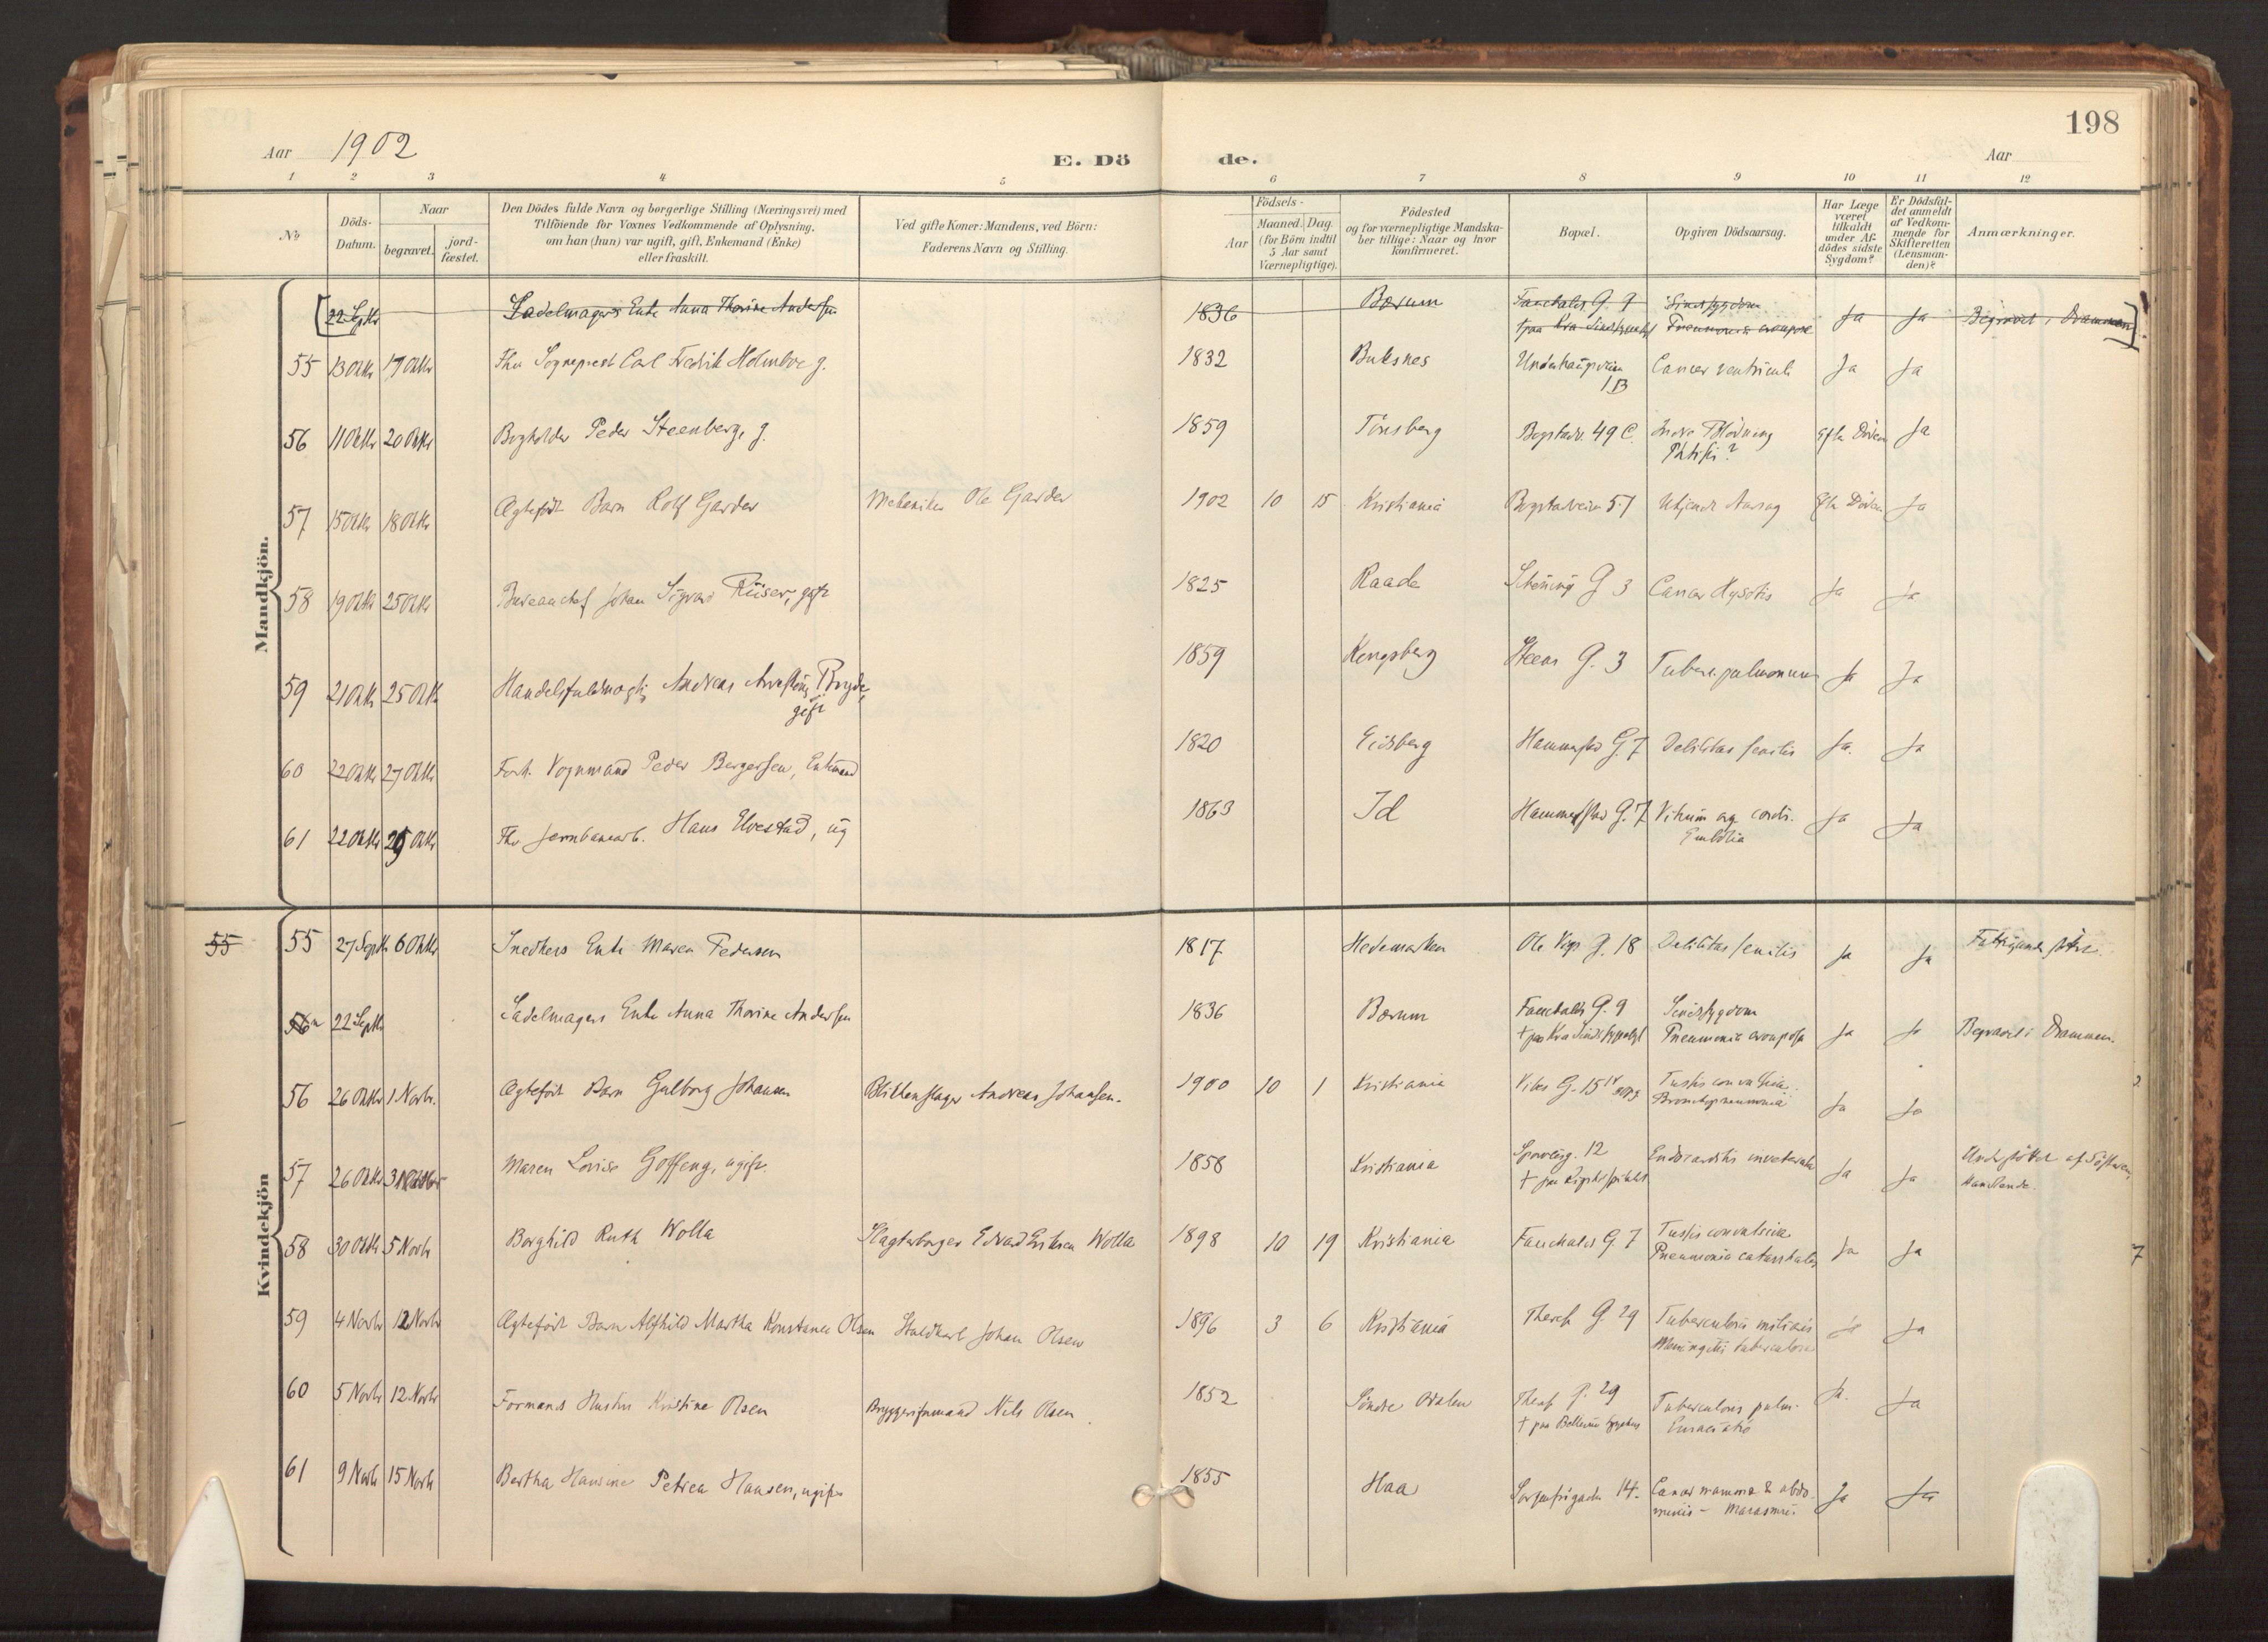 198
Aar 1902
E. Dö
de.
Aar
1 2 3 4 5 6 7 8 9 10 11 12
No
Döds-Datum.
Naar
begravet.
jord-fæstet.
Den Dödes fulde Navn og borgerlige Stilling (Næringsvei) med
Tilföiende for Voxnes Vedkommende af Oplysning,
om han (hun) var ugift, gift, Enkemand (Enke)
eller fraskilt.
Ved gifte Koner: Mandens, ved Börn:
Faderens Navn og Stilling.
Födsels-
Aar
Maaned.
Dag.
(for Börn indtil
5 Aar samt
Værnepligtige).
Födested
og for værnepligtige Mandska-
ber tillige: Naar og hvor
konfirmeret.
Bopæl.
Opgiven Dödsaarsag.
Har Læge
været
tilkaldt
under Af-
dödes sidste
Sygdom?
Er Dödsfal-
det anmeldt
af Vedkom-
mende for
Skifteretten
(Lensman-
den)?
Anmærkninger.
Mandkjön.
22 Septbr Sadelmagers Enke Anna Thorine Andersen 1836 Bærum Fauchalds G. 9 Sindssygdom Ja Ja Begravet i Drammen
paa Kra Sindssygeasyl Pneumonia crouposa
55 13 Oktbr 17 Oktbr Fhv Sogneprest Carl Fredrik Holmboe g. 1832 Buksnes Underhaugsveien Cancer ventriculi Ja Ja
1 B
56 11 Oktbr 20 Oktbr Bogholder Peder Steenberg, g. 1859 Tönsberg Bogstadv. 49 C. Indre Blödning Efter Döden Ja
Phtisis?
57 15 Oktbr 18 Oktbr Ægtefödt Barn Rolf Garder Mekaniker Ole Garder 1902 10 15 Kristiania Bogstadveien 51 Ukjendt Aarsag Eft. Döden Ja
58 19 Oktbr 25 Oktbr Bureauchef Johan Sigvard Rüser, gift 1825 Raade Schöning G 3 Cancer Ja Ja
59 21 Oktbr 25 Oktbr Handelsfuldmægtig Andreas Bryde, 1859 Kongsberg Steens G. 3 Tuberc. pulmonum Ja Ja
gift
60 22 Oktbr 27 Oktbr Forh. Vognmand Peder Bergersen, Enkemand 1820 Eidsberg Hammersta G. 7 Debilitas senilis Ja. Ja
61 22 Oktbr 29 Oktbr Fhv Jernbanearb. Hans Elvestad, ug 1863 Id Hammersta G. 7 Vitium org. cordis. Ja Ja
Embolia
Kvindekjön
55 55 27 Septbr 6 Oktbr Snedkers Enke Maren Pedersen 1817 Hedemarken Ole Vigs G. 18 Debilitas senilis Ja Ja
56a 22 Septbr Sadelmagers Enke Anna Thorine Andersen 1836 Bærum Fauchalds G. 9 Sindssygdom Ja Ja Begravet i Drammen.
+ paa Kra Sindssygeasyl Pneumonia crouposa
56 26 Oktbr 1 Novbr. Ægtefödt Barn Gulborg Johansen Blikkenslager Andreas Johansen. 1900 10 1 Kristiania Vibes G. 15 Tussis convulsiva. Ja Ja
Bronchopneumonia
57 26 Oktbr 31 Maren Lovise Goffeng, ugift. 1858 Kristiania Sporveisg. 12 Endocarditis inveterata Ja Ja Understöttet af Söstrene,
+ paa Rigshospitalet Handlende.
58 30 Oktbr 5 Novbr Borghild Ruth Wolla Slagterborger Edvard Eriksen Wolla 1898 10 19 Kristiania Fauchalds G 7 Tussis convulsiva Ja Ja 7
Pneumonia catarrhalis
59 4 Novbr 12 Novbr Ægtefödt Barn Alfhild Martha Konstance Olsen Staldkarl Johan Olsen 1896 3 6 Kristiania Theres G. 29 Tuberculosis miliaris Ja Ja
Meningitis tuberculosa
60 5 Novbr 12 Novbr Formands Hustru Kristine Olsen Bryggeriformand Nils Olsen. 1852 Söndre Odalen Theres G. 29 Tuberculosis pulm. Ja. Ja
+ paa Bellevue Sygehus Emaciatio
61 9 Novbr 15 Novbr Bertha Hansine Petrea Hansen, ugift 1855 Haa Sorgenfrigaden 14. Cancer mamma & abdo- Ja Ja
minis - Marasmus.